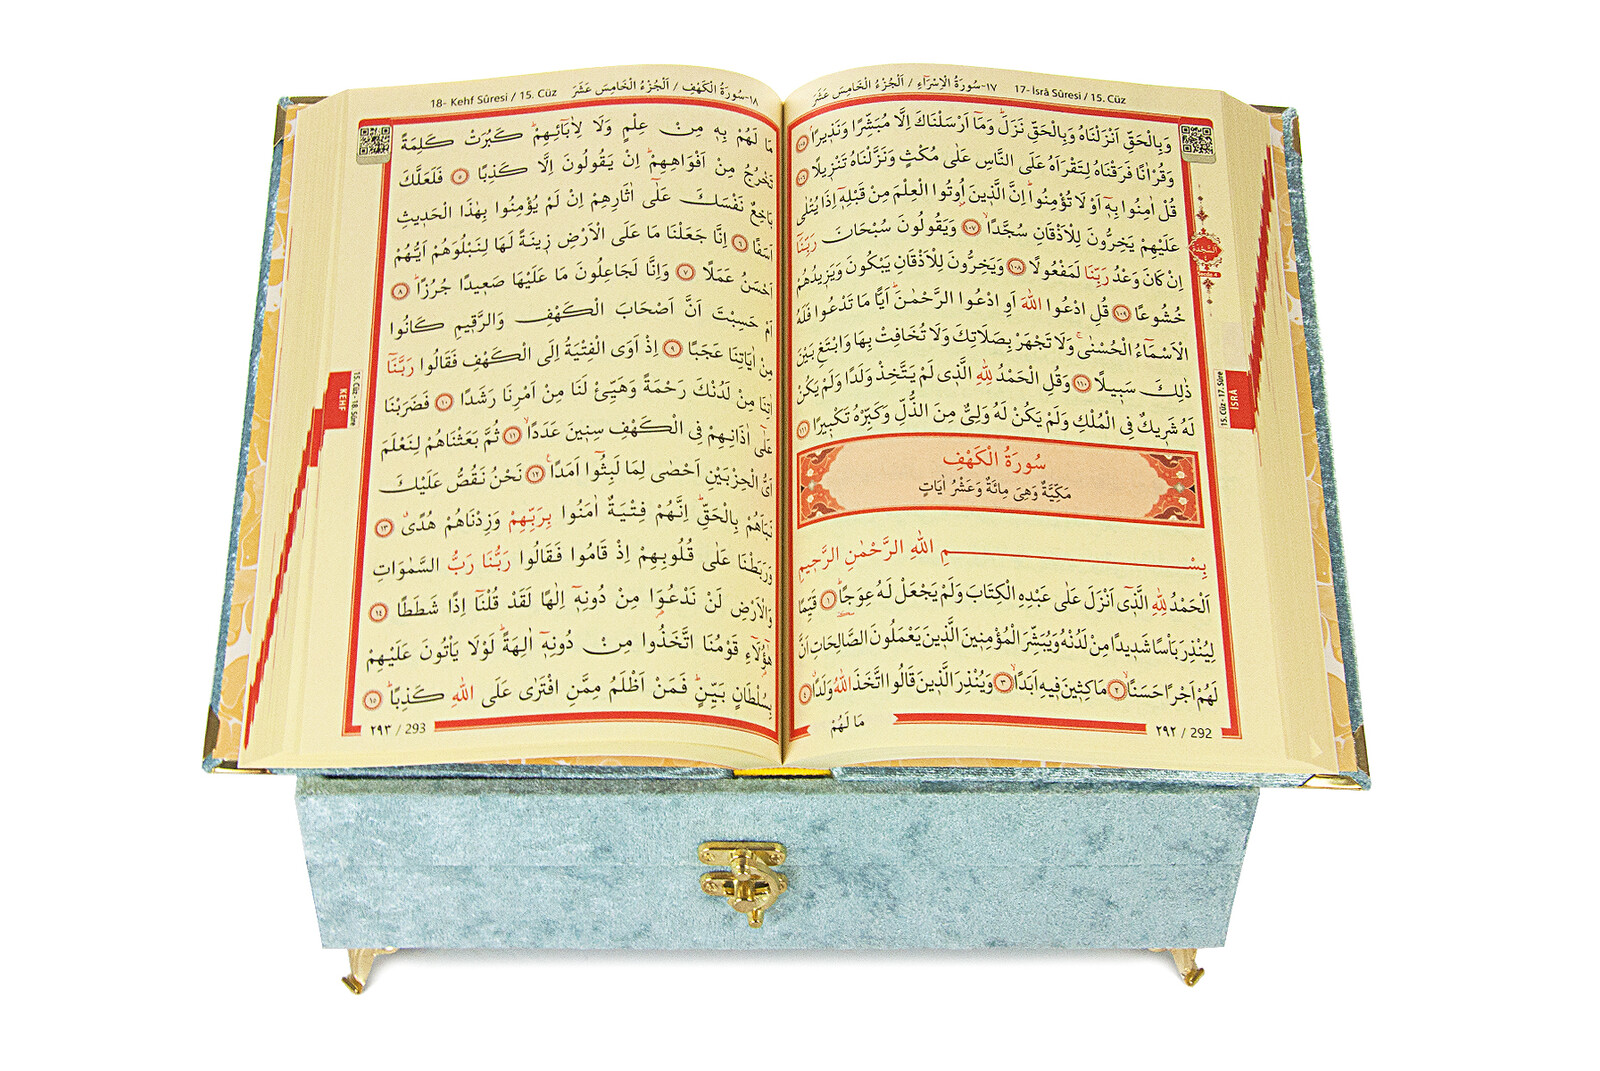 ١٧-سُورَةُ الْاِسْرَاءِ / اَلْجُزْءُ الْخَامِسَ عَشَرَ 17- İsrâ Sûresi / 15. Cüz
وَبِالْحَقِّ اَنْزَلْنَاهُ وَبِالْحَقِّ نَزَلَۜ وَمَٓا اَرْسَلْنَاكَ اِلَّا مُبَشِّرًا وَنَذ۪يرًاۢ ﴿١٠٥﴾
وَقُرْاٰنًا فَرَقْنَاهُ لِتَقْرَاَهُ عَلَى النَّاسِ عَلٰى مُكْثٍ وَنَزَّلْنَاهُ تَنْز۪يلًا ﴿١٠٦﴾
قُلْ اٰمِنُوا بِه۪ٓ اَوْ لَا تُؤْمِنُواۜ اِنَّ الَّذ۪ينَ اُو۫تُوا الْعِلْمَ مِنْ قَبْلِه۪ٓ اِذَا يُتْلٰى
عَلَيْهِمْ يَخِرُّونَ لِلْاَذْقَانِ سُجَّدًاۙ ﴿١٠٧﴾ وَيَقُولُونَ سُبْحَانَ رَبِّنَٓا
اِنْ كَانَ وَعْدُ رَبِّنَا لَمَفْعُولًا ﴿١٠٨﴾ وَيَخِرُّونَ لِلْاَذْقَانِ يَبْكُونَ وَيَز۪يدُهُمْ
خُشُوعًا ﴿١٠٩﴾ قُلِ ادْعُوا اللّٰهَ اَوِ ادْعُوا الرَّحْمٰنَۜ اَيًّا مَا تَدْعُوا فَلَهُ
الْاَسْمَٓاءُ الْحُسْنٰىۚ وَلَا تَجْهَرْ بِصَلَاتِكَ وَلَا تُخَافِتْ بِهَا وَابْتَغِ بَيْنَ
ذٰلِكَ سَب۪يلًا ﴿١١٠﴾ وَقُلِ الْحَمْدُ لِلّٰهِ الَّذ۪ي لَمْ يَتَّخِذْ وَلَدًا وَلَمْ يَكُنْ
لَهُ شَر۪يكٌ فِي الْمُلْكِ وَلَمْ يَكُنْ لَهُ وَلِيٌّ مِنَ الذُّلِّ وَكَبِّرْهُ تَكْب۪يرًا ﴿١١١﴾
سُورَةُ الْكَهْفِ
مَكِّيَّةٌ وَهِيَ مِائَةٌ وَعَشْرُ اٰيَاتٍ
بِسْمِ اللّٰهِ الرَّحْمٰنِ الرَّح۪يمِ
اَلْحَمْدُ لِلّٰهِ الَّذ۪ٓي اَنْزَلَ عَلٰى عَبْدِهِ الْكِتَابَ وَلَمْ يَجْعَلْ لَهُ عِوَجًاۜ ﴿١﴾ قَيِّمًا
لِيُنْذِرَ بَأْسًا شَد۪يدًا مِنْ لَدُنْهُ وَيُبَشِّرَ الْمُؤْمِن۪ينَ الَّذ۪ينَ يَعْمَلُونَ الصَّالِحَاتِ اَنَّ
لَهُمْ اَجْرًا حَسَنًاۙ ﴿٢﴾ مَاكِث۪ينَ ف۪يهِ اَبَدًاۙ ﴿٣﴾ وَيُنْذِرَ الَّذ۪ينَ قَالُوا اتَّخَذَ اللّٰهُ وَلَدًاۗ ﴿٤﴾
مَا لَهُمْ
٢٩٢ / 292
اَلسَّجْدَة
15. Cüz - 17. Sûre
İSRÂ
١٨-سُورَةُ الْكَهْفِ / اَلْجُزْءُ الْخَامِسَ عَشَرَ 18- Kehf Sûresi / 15. Cüz
مَا لَهُمْ بِه۪ مِنْ عِلْمٍ وَلَا لِاٰبَٓائِهِمْۜ كَبُرَتْ كَلِمَةً
تَخْرُجُ مِنْ اَفْوَاهِهِمْۜ اِنْ يَقُولُونَ اِلَّا كَذِبًا ﴿٥﴾ فَلَعَلَّكَ
بَاخِعٌ نَفْسَكَ عَلٰٓى اٰثَارِهِمْ اِنْ لَمْ يُؤْمِنُوا بِهٰذَا الْحَد۪يثِ
اَسَفًا ﴿٦﴾ اِنَّا جَعَلْنَا مَا عَلَى الْاَرْضِ ز۪ينَةً لَهَا لِنَبْلُوَهُمْ اَيُّهُمْ
اَحْسَنُ عَمَلًا ﴿٧﴾ وَاِنَّا لَجَاعِلُونَ مَا عَلَيْهَا صَع۪يدًا جُرُزًاۜ ﴿٨﴾
اَمْ حَسِبْتَ اَنَّ اَصْحَابَ الْكَهْفِ وَالرَّق۪يمِ كَانُوا
مِنْ اٰيَاتِنَا عَجَبًا ﴿٩﴾ اِذْ اَوَى الْفِتْيَةُ اِلَى الْكَهْفِ فَقَالُوا رَبَّنَٓا
اٰتِنَا مِنْ لَدُنْكَ رَحْمَةً وَهَيِّئْ لَنَا مِنْ اَمْرِنَا رَشَدًا ﴿١٠﴾ فَضَرَبْنَا
عَلٰٓى اٰذَانِهِمْ فِي الْكَهْفِ سِن۪ينَ عَدَدًاۙ ﴿١١﴾ ثُمَّ بَعَثْنَاهُمْ لِنَعْلَمَ
اَيُّ الْحِزْبَيْنِ اَحْصٰى لِمَا لَبِثُٓوا اَمَدًا۟ ﴿١٢﴾ نَحْنُ نَقُصُّ عَلَيْكَ
نَبَاَهُمْ بِالْحَقِّۜ اِنَّهُمْ فِتْيَةٌ اٰمَنُوا بِرَبِّهِمْ وَزِدْنَاهُمْ هُدًىۗ ﴿١٣﴾
وَرَبَطْنَا عَلٰى قُلُوبِهِمْ اِذْ قَامُوا فَقَالُوا رَبُّنَا رَبُّ السَّمٰوَاتِ
وَالْاَرْضِ لَنْ نَدْعُوَ۬ا مِنْ دُونِه۪ٓ اِلٰهًا لَقَدْ قُلْنَٓا اِذًا شَطَطًا ﴿١٤﴾
هٰٓؤُ۬لَٓاءِ قَوْمُنَا اتَّخَذُوا مِنْ دُونِه۪ٓ اٰلِهَةًۜ لَوْلَا يَأْتُونَ عَلَيْهِمْ
بِسُلْطَانٍ بَيِّنٍۜ فَمَنْ اَظْلَمُ مِمَّنِ افْتَرٰى عَلَى اللّٰهِ كَذِبًاۜ ﴿١٥﴾
٢٩٣ / 293
15. Cüz - 18. Sûre
KEHF